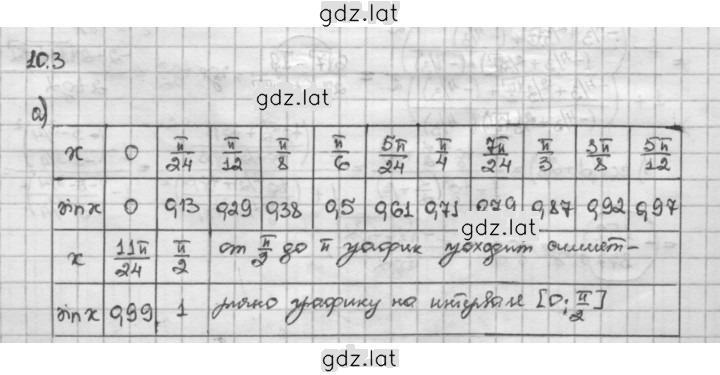 gdz.lat
10.3
gdz.lat
а)
x 0 π/24 π/12 π/8 π/6 5π/24 π/4 7π/24 π/3 3π/8 5π/12
sin x 0 0,13 0,29 0,38 0,5 0,61 0,71 0,79 0,87 0,92 0,97
gdz.lat
x 11π/24 π/2 от π/2 до π график уходит симмет-
sin x 0,99 1 рично графику на интервале [0; π/2]
gdz.lat